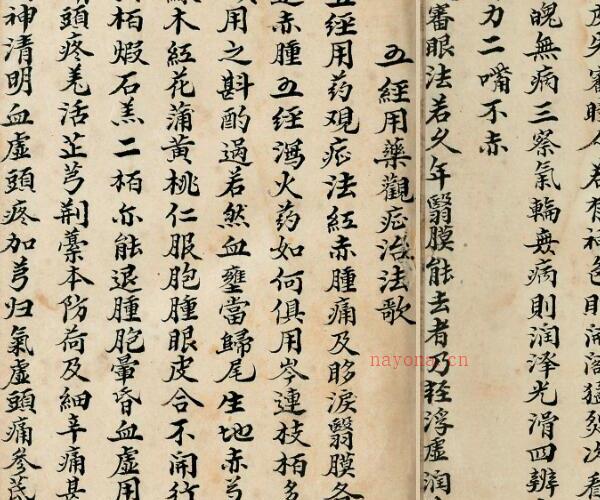 審瞳
魄無病三察氣輪無病則润泽光滑四辨
力二嘴不赤
審眼法若久年翳膜能去者乃轻浮虚润
五經用藥觀症治法歌
五經用药观症法紅赤腫痛及眵淚翳膜各
赤腫五經瀉火药如何俱用岑連枝柏多
用之斟酌過若然血壅當歸尾生地赤芍
木紅花蒲黄桃仁眼胞腫眼皮合不開行
柏煅石羔二柏亦能退腫胞暈昏血虚用
頭疼羌活芷芎荆藁本防荷及細辛痛甚
神清明血虚頭疼加芎归氣虚頭痛參芪
nayona.cn